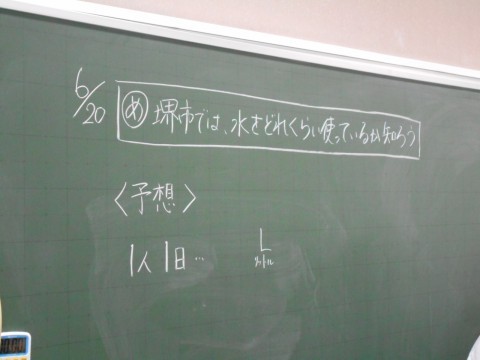 6/20
め 堺市では、水をどれくらい使っているか知ろう
〈予想〉
1人 1日… L